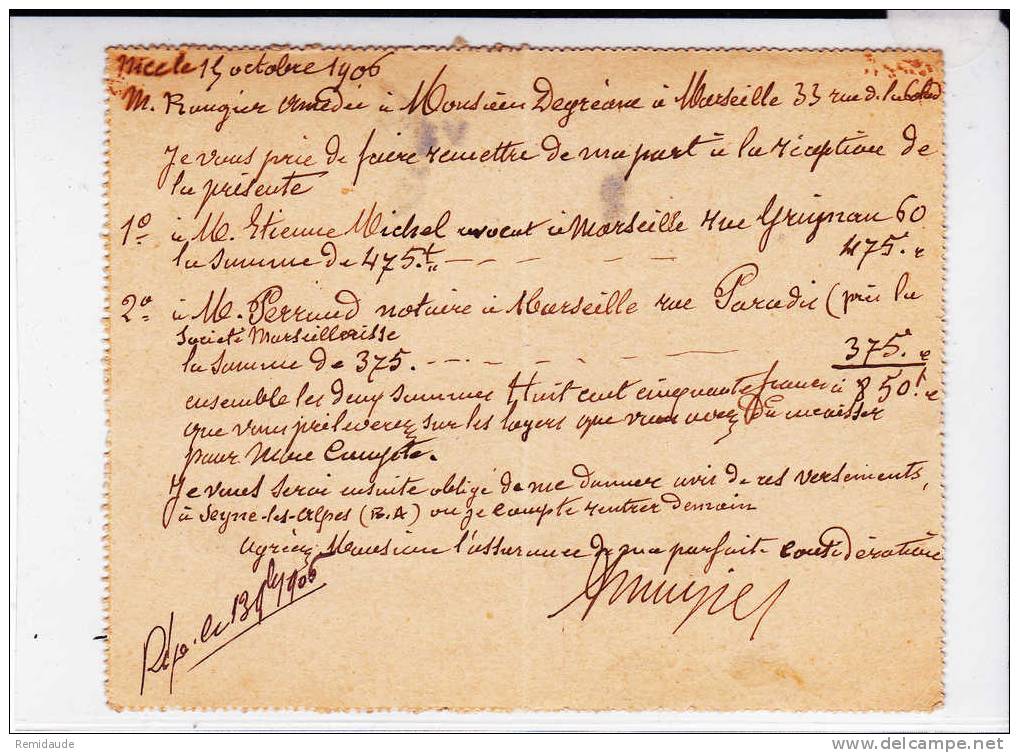 Nice le 15 octobre 1906
M. Rougier Amédée à Monsieur Degréane à Marseille 33 rue de la
Je vous prie de faire remettre de ma part à la réception de
la présente
1° à M. Etienne Michel avocat à Marseille rue Grignan 60
la somme de 475.f - - - - - - 475.f
2° à M. Perraud notaire à Marseille rue Paradis (près la
Société Marseillaise
la somme de 375. - - - - - - 375.f
ensemble les deux sommes Huit cent cinquante francs 850.f
que vous prélèverez sur les loyers que vous avez dû encaisser
pour mon Compte.
Je vous serai ensuite obligé de me donner avis de ces versements,
à Seyne-les-Alpes (B.A) ou je compte rentrer demain
Agréez Monsieur l'assurance de ma parfaite considération
Rougier
Rép. le 1906
Remidaude
http://www.delcampe.net